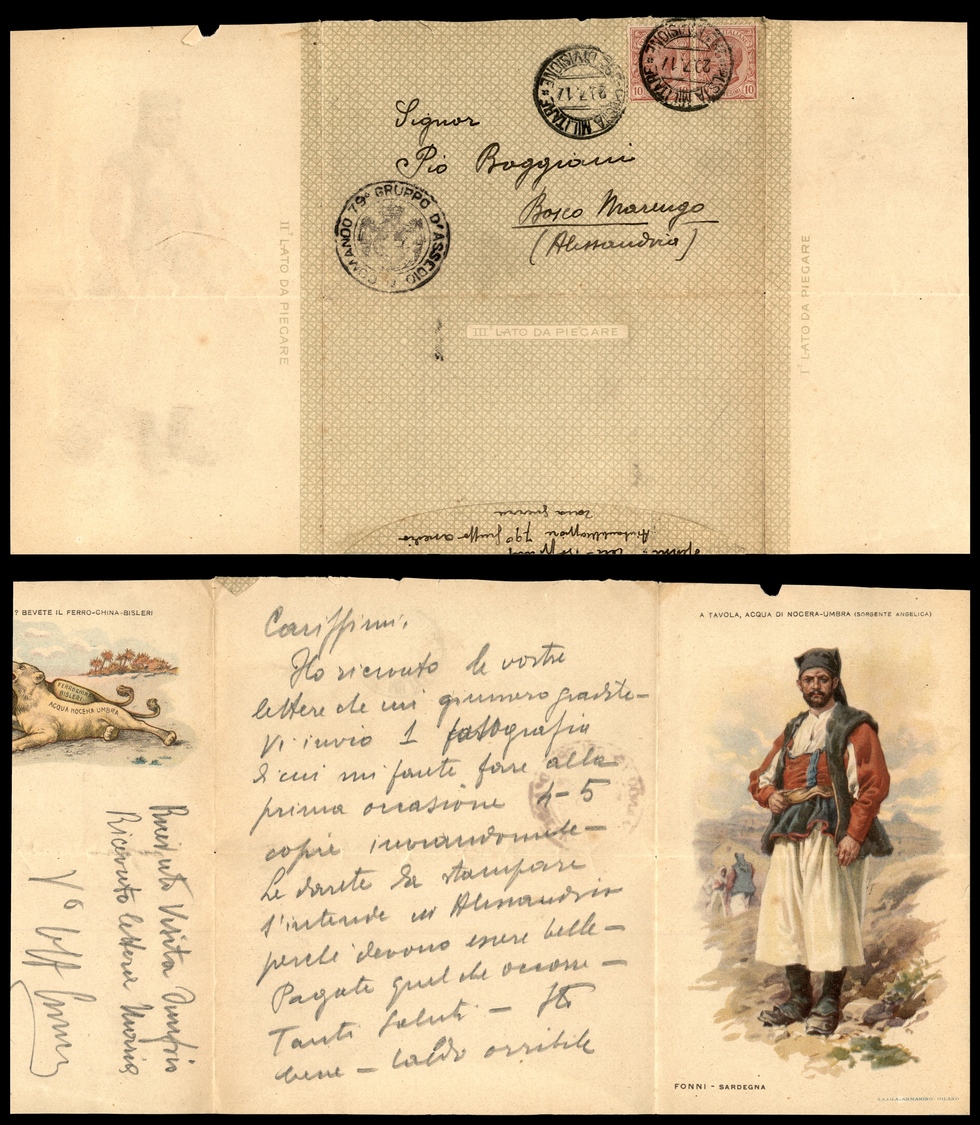 POSTA MILITARE
DIVISIONE
7.17
POSTA MILITARE
DIVISIONE
7.17
10
10
Signor
Pio Boggiani
Bosco Marengo
(Alessandria)
COMANDO 79° GRUPPO D'ASSEDIO
II° LATO DA PIEGARE
III° LATO DA PIEGARE
I° LATO DA PIEGARE
79° gruppo assedio
zona guerra
? BEVETE IL FERRO-CHINA-BISLERI
FERRO-CHINA
BISLERI
ACQUA NOCERA UMBRA
Ricevuto lettera
Vo aff
Carissimi,
Ho ricevuto le vostre
lettere che mi giunsero gradite –
Vi invio 1 fotografia
di cui mi farete fare alla
prima occasione 4-5
copie inviandomele –
Le darete da stampare
s'intende in Alessandria
perché devono essere belle –
Pagate quel che occorre –
Tanti saluti – Sto
bene – Caldo orribile
A TAVOLA, ACQUA DI NOCERA-UMBRA (SORGENTE ANGELICA)
FONNI – SARDEGNA